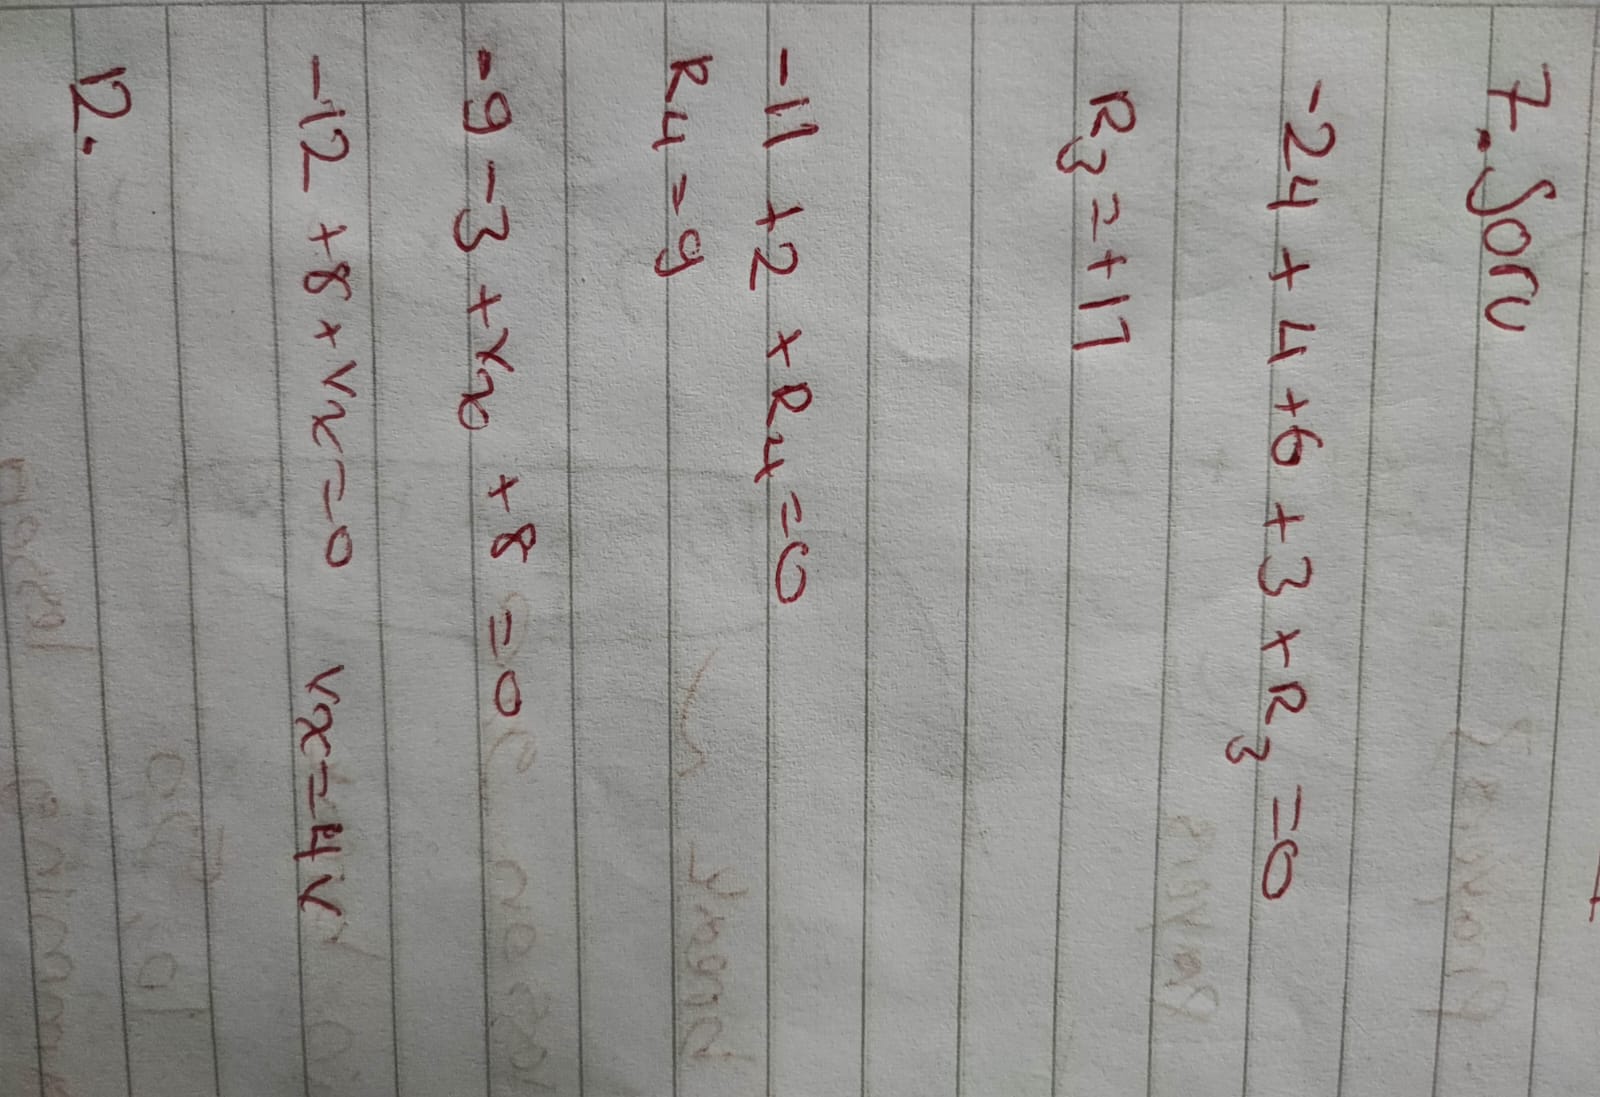 7. Soru
-24 + 4 + 6 + 3 + R3 = 0
R3 = +17
-11 + 2 + R4 = 0
R4 = 9
-9 - 3 + Vx + 8 = 0
-12 + 8 + Vx = 0 Vx = 4V
12.